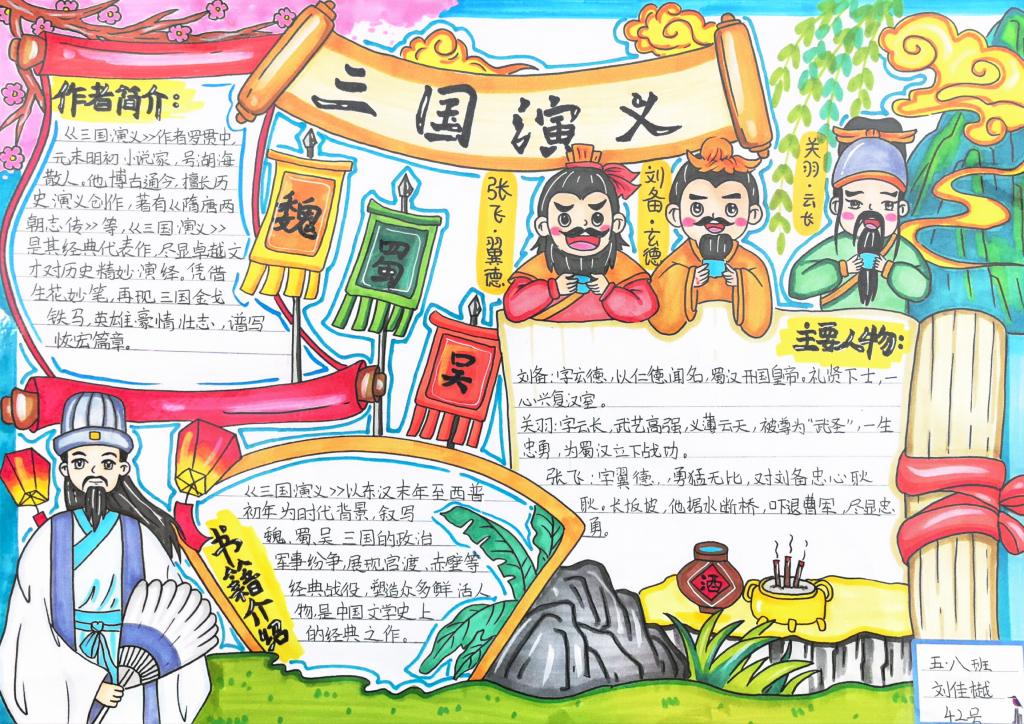 三国演义
作者简介:
《三国演义》作者罗贯中,
元末明初小说家,号湖海
散人。他博古通今,擅长历
史演义创作,著有《隋唐两
朝志传》等,《三国演义》
是其经典代表作,尽显卓越文
才对历史精妙演绎,凭借
生花妙笔,再现三国金戈
铁马,英雄豪情壮志,谱写
恢宏篇章。
魏
蜀
吴
张飞·翼德
刘备·玄德
关羽·云长
主要人物:
刘备:字玄德,以仁德闻名,蜀汉开国皇帝。礼贤下士,一
心兴复汉室。
关羽:字云长,武艺高强,义薄云天,被尊为"武圣",一生
忠勇,为蜀汉立下战功。
张飞:字翼德,勇猛无比,对刘备忠心耿
耿,长坂坡,他据水断桥,吓退曹军,尽显忠
勇。
书籍介绍
《三国演义》以东汉末年至西晋
初年为时代背景,叙写
魏,蜀,吴三国的政治
军事纷争,展现官渡、赤壁等
经典战役,塑造众多鲜活人
物,是中国文学史上
的经典之作。
酒
五·八班
刘佳樾
42号